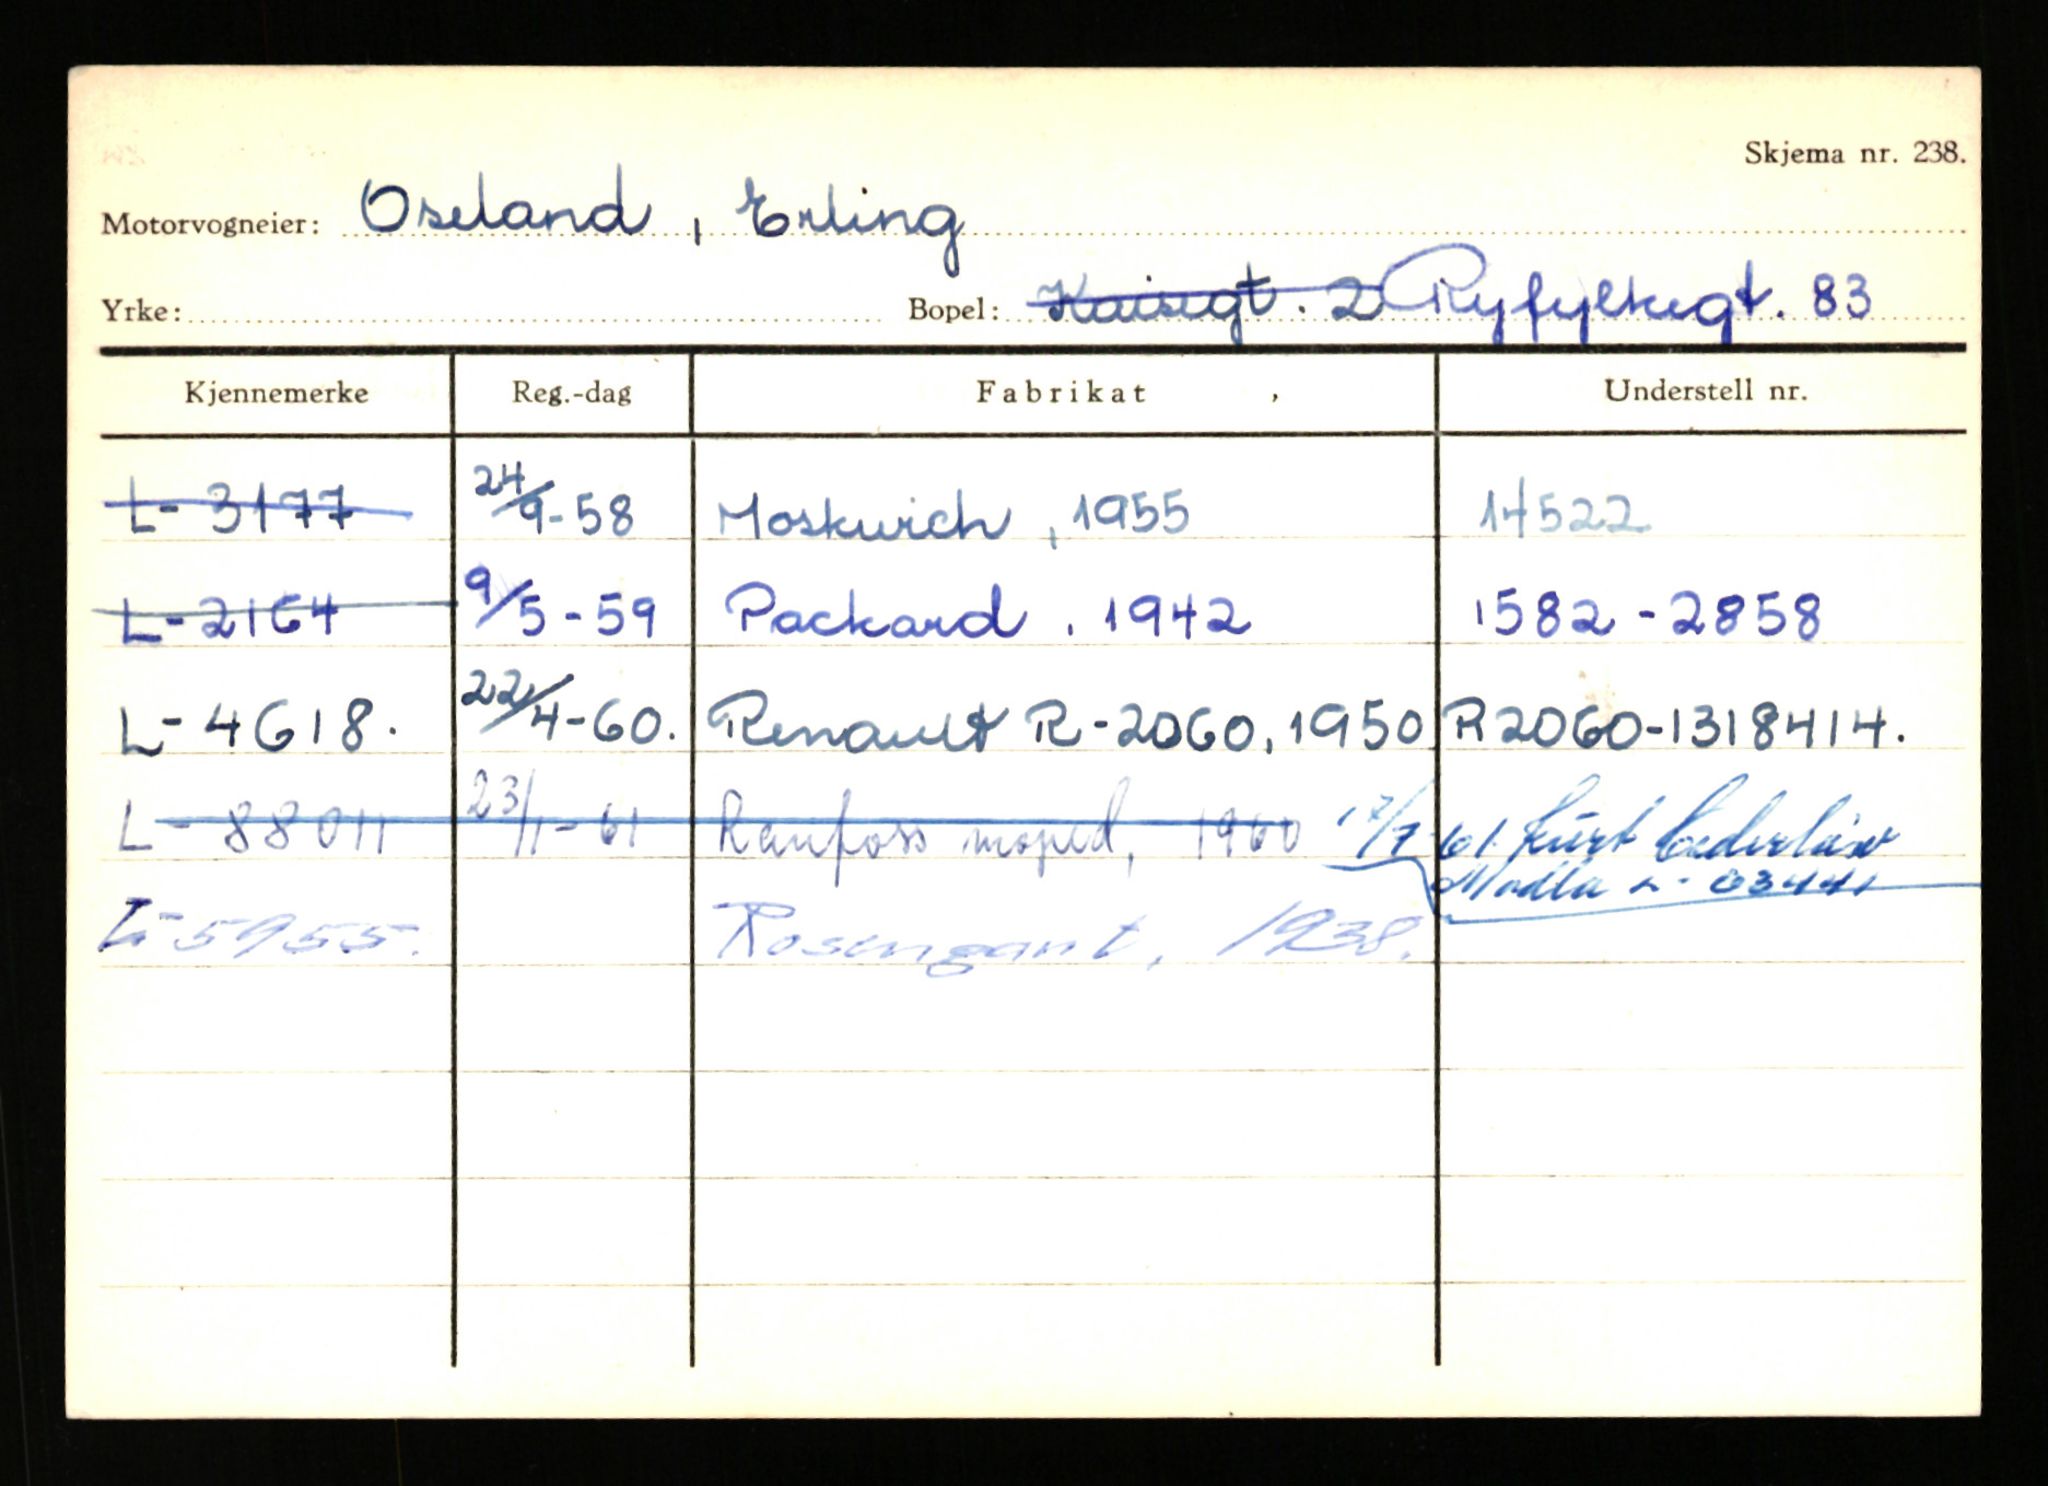 Skjema nr. 238.
Motorvogneier: Oseland, Erling
Yrke: Bopel: Kaisegt. 2 Ryfylkegt. 83
Kjennemerke Reg.-dag Fabrikat, Understell nr.
L-3177 24/9-58 Moskwich, 1955 14522
L-2164 9/5-59 Packard. 1942 1582-2858
L-4618. 22/4-60. Renault R-2060, 1950 R2060-1318414.
L-88011 23/1-61 Raufoss moped, 1960 17/7-61. Kurt
Madla L-
L-5955. Rosengant, 1938.